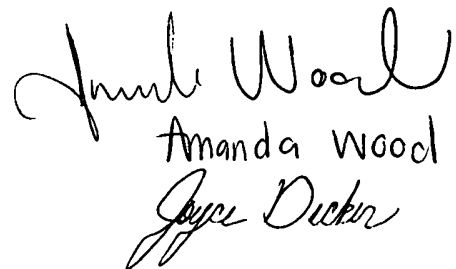 Amanda Wood
Amanda Wood
Joyce Decker